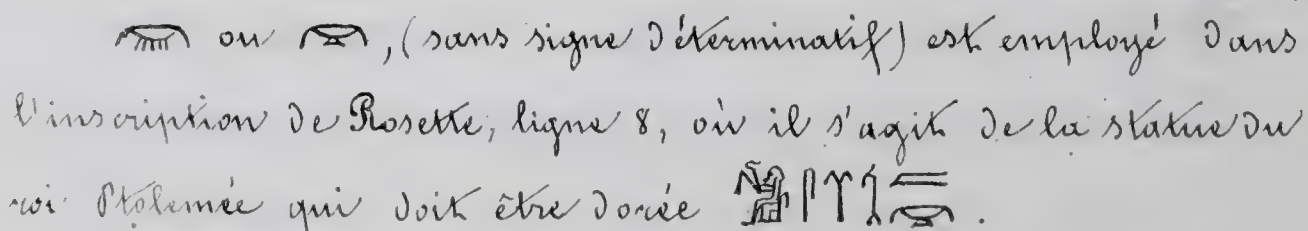 ou , (sans signe déterminatif) est employé dans
l'inscription de Rosette, ligne 8, où il s'agit de la statue du
roi Ptolemée qui doit être dorée .